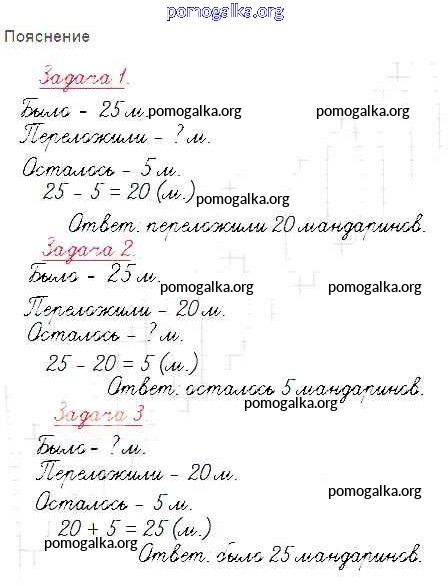 pomogalka.org
Пояснение
Задача 1.
Было – 25 м. pomogalka.org pomogalka.org
Переложили – ? м.
Осталось – 5 м.
25 – 5 = 20 (м.) pomogalka.org
Ответ: переложили 20 мандаринов.
Задача 2.
Было – 25 м.
pomogalka.org pomogalka.org
Переложили – 20 м.
Осталось – ? м.
25 – 20 = 5 (м.)
Ответ: осталось 5 мандаринов.
pomogalka.org
Задача 3
Было – ? м.
Переложили – 20 м.
pomogalka.org
Осталось – 5 м.
20 + 5 = 25 (м.)
pomogalka.org
Ответ: было 25 мандаринов.